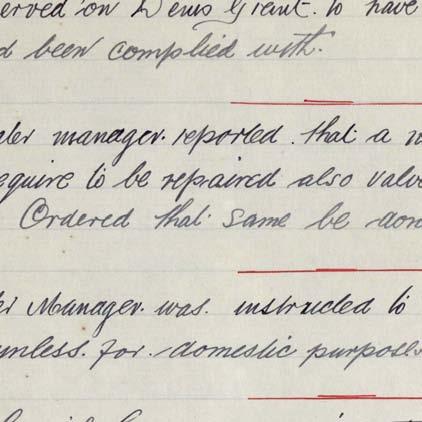 erved on Denis Grant. to have
d been complied with.
ter manager. reported. that a
equire to be repaired also valve
Ordered that same be don
er Manager. was. instructed to
unless. for. domestic purposes